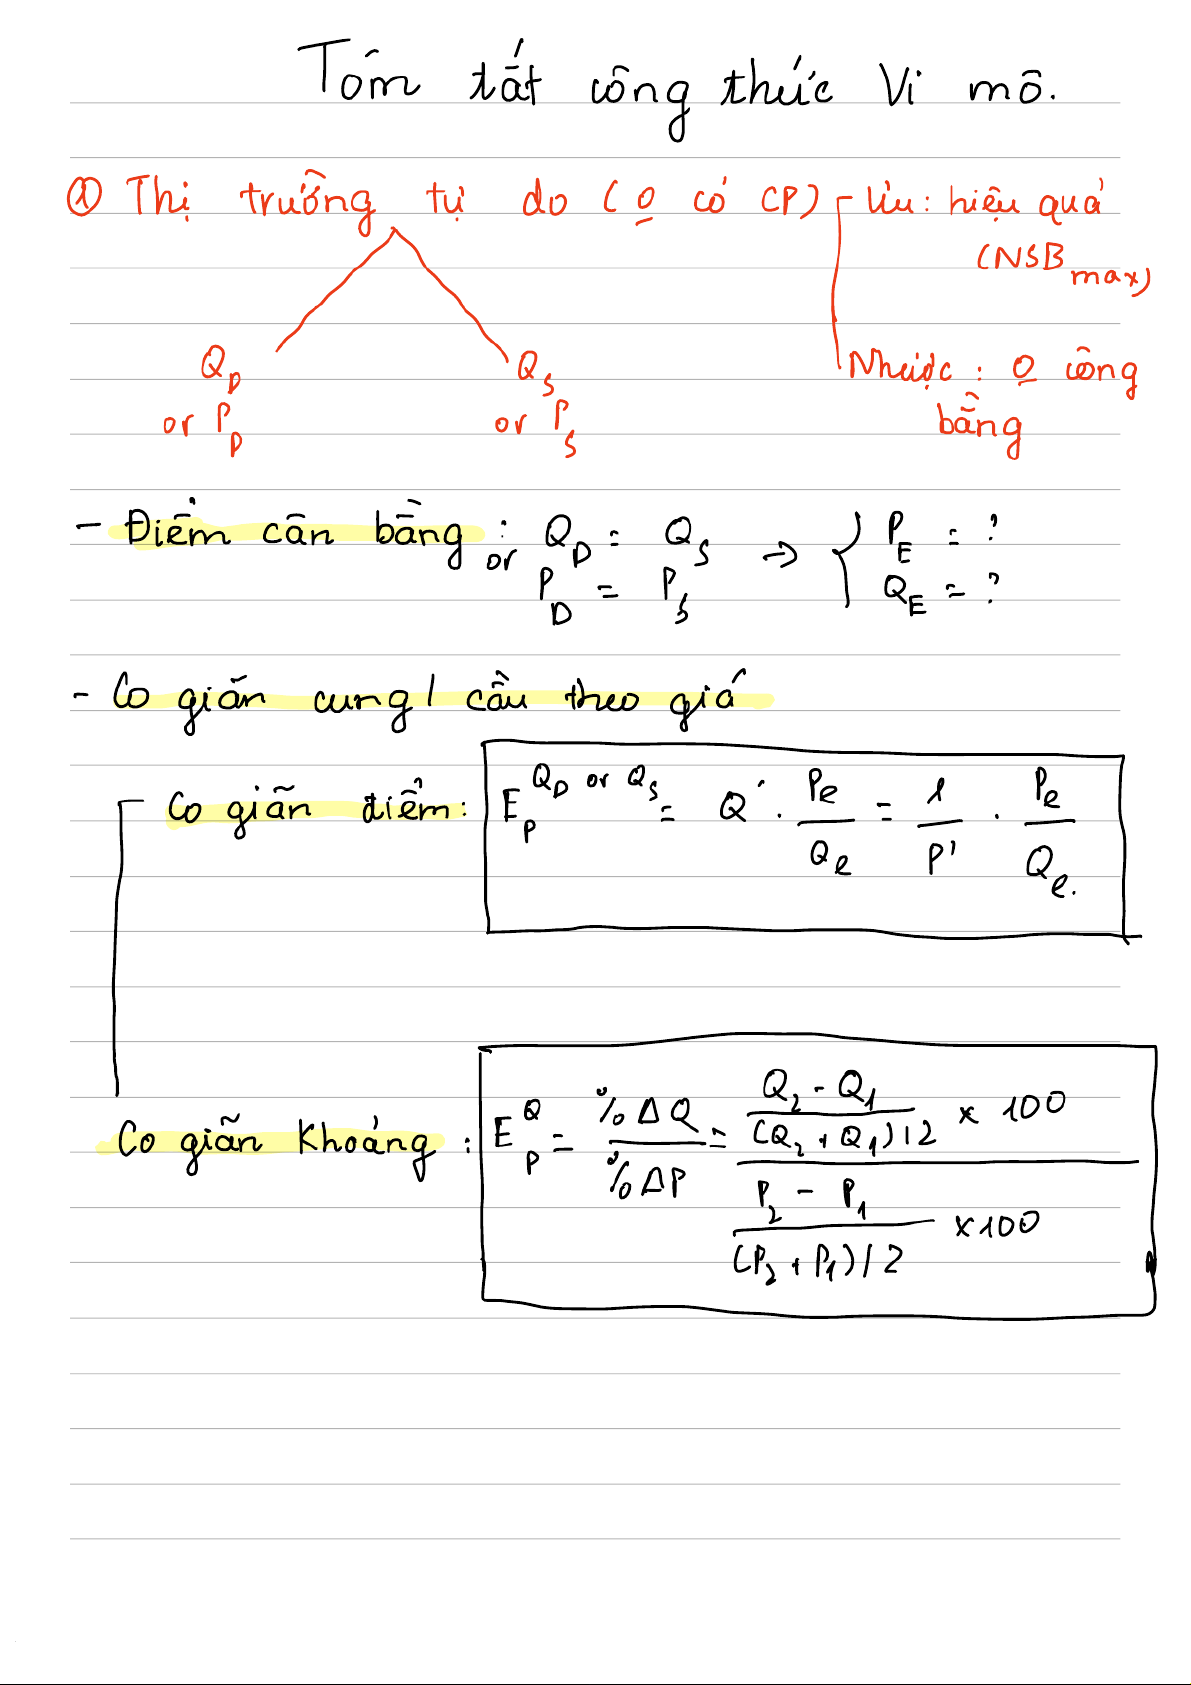 Tóm tắt công thức Vi mô.
① Thị trường tự do (0 có CP) Ưu: hiệu quả
(NSB max)
Q_D Q_S Nhược: 0 công
or P_D or P_S bằng
- Điểm cân bằng: Q_D = Q_S => { P_E = ?
or P_D = P_S Q_E = ?
- Co giãn cung / cầu theo giá
Co giãn điểm: E_P^{Q_D or Q_S} = Q' . Pe/Qe = 1/P' . Pe/Qe.
Co giãn Khoảng: E_P^Q = %ΔQ / %ΔP = (Q2 - Q1)/((Q2 + Q1)/2) x 100
(P2 - P1)/((P2 + P1)/2) x100